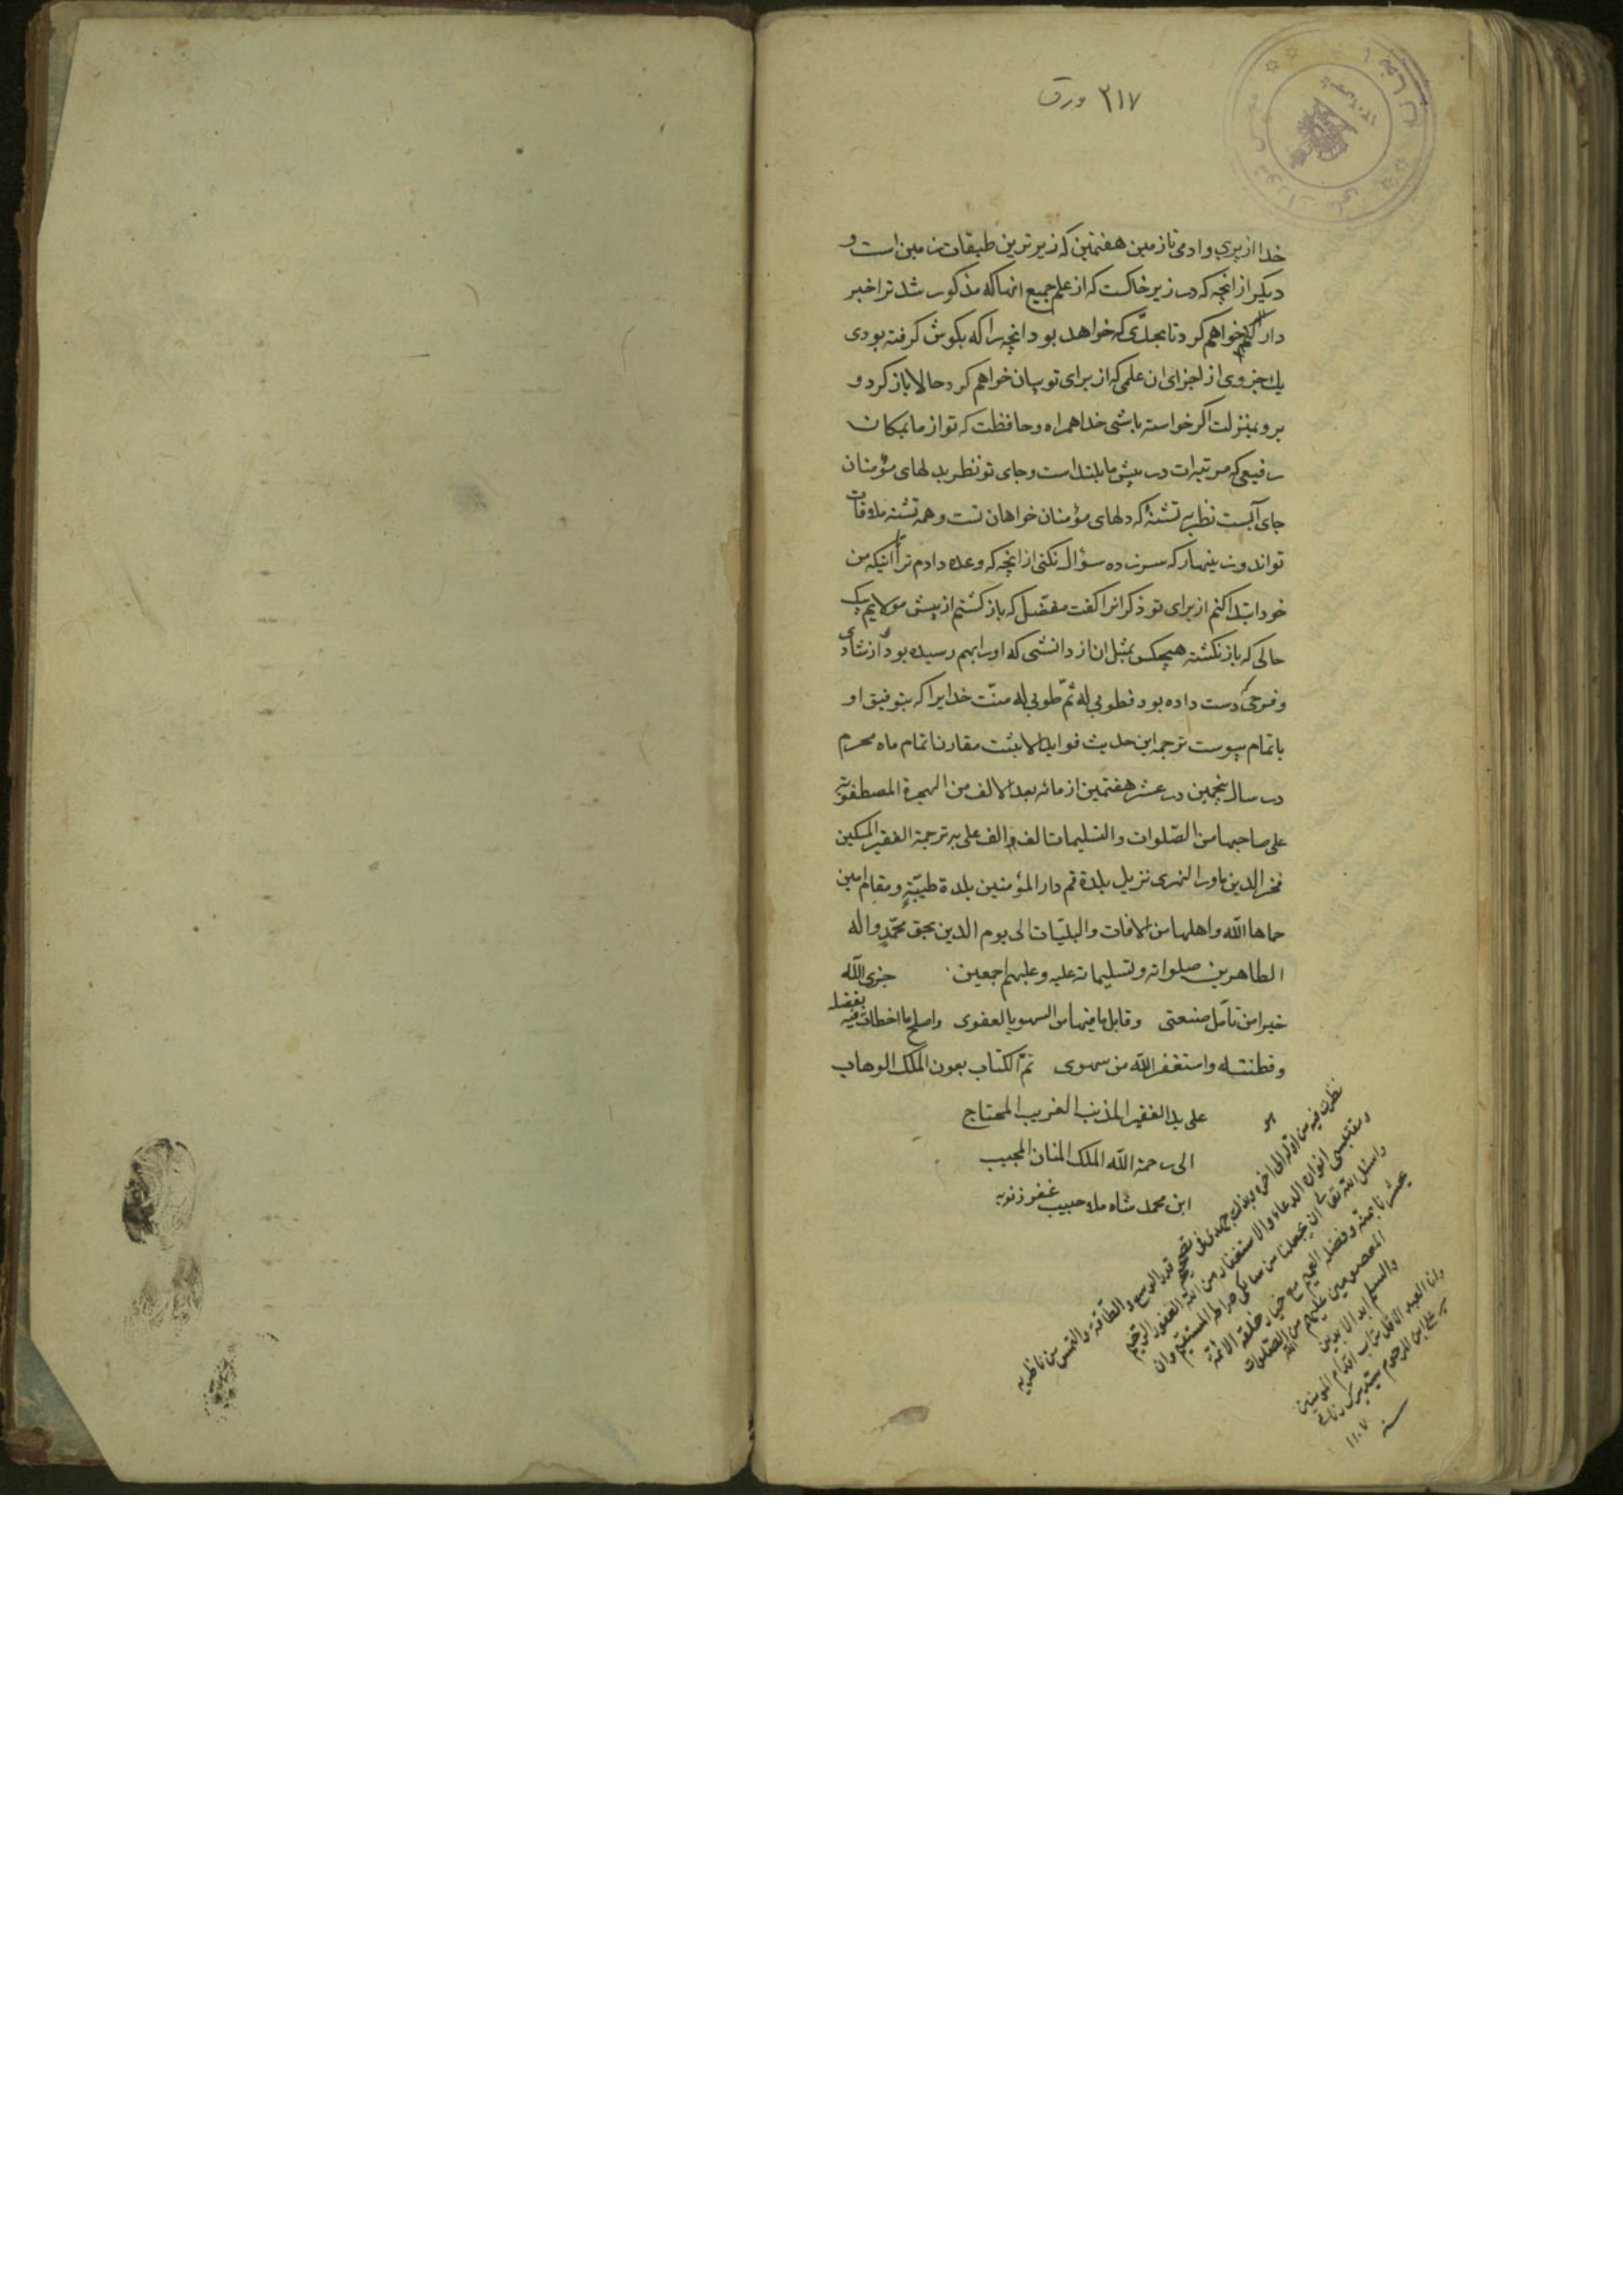 ۲۱۷ ورق
خدا از پری و ادمی تا زمین هفتمین که زیرترین طبقات زمین است و
دیکر از انچه که در زیر خاکست که از علم جمیع انها که مذکور شد ترا خبر
دار خواهم کرد تا بحدّی که خواهد بود انچه را که بکوش کرفته بودی
یك جزوی از اجزای ان علمی که از برای تو بیان خواهم کرد حالا باز کرد و
برو بمنزلت اکر خواسته باشی خدا همراه و حافظت که تو از ما بمکان
رفیعی که مرتبه‌ات در پیش ما بلند است و جای تو نظر بدلهای مؤمنان
جای آبست نظر به تشنهٔ که دلهای مؤمنان خواهان تست و همه تشنه ملاقات
تواند و زینهار که سر زده سؤال نکنی از انچه که وعده دادم ترا تا انیکه من
خود ابتدا کنم از برای تو ذکر انرا کفت مفضّل که باز کشتم از پیش مولایم بیک
حالی که باز نکشته هیچکس بمثل ان از دانشی که او را بهم رسیده بود و از شادی
و فرحی که دست داده بود فطوبی له ثمّ طوبی له منّت خدایرا که بتوفیق او
باتمام پیوست ترجمه این حدیث فواید الابثت مقارن اتمام ماه محرم
در سال پنجمین در عشر هفتمین از مائه بعد الالف من الهجرة المصطفویّه
علی صاحبها من الصّلوات والتسلیمات الف الف علی ید ترجمة الفقیر المسکین
فخر الدین ماوراالنهری نزیل بلدة قم دار المؤمنین بلدة طیّبةٍ ومقام امین
حماها الله واهلها من الافات والبلیّات الی یوم الدین بحق محمّدٍ واله
الطاهرین صلواته وتسلیماته علیه وعلیهم اجمعین جزی الله
خیرا من تأمّل صنعتی وقابل ما فیها من السهو بالعفوی واصلح ما اخطات فیه بفضله
وفطنته واستغفر الله من سهوی تمّ الکتاب بعون الملک الوهاب
علی ید الفقیر المذنب الغریب المحتاج
الی رحمة الله الملک المنان المجیب
ابن محمد شاه ملا حبیب غفر ذنوبه
هو
نظرت فیه من اوّله الی اخره وبذلت جهدی فی تصحیحه قدر الوسع والطّاقة والتمس من ناظریه
ومقتبسی انواره الدعاء والاستغفار من الله الغفور الرّحیم
واسئل الله تعالی ان یجعلنا من سالکی صراط المستقیم وان
یحشرنا بمنه وفضله العمیم مع خیار خلقه الائمة
المعصومین علیهم من الله الصّلوات
والسلم ابد الابدین
وانا العبد الاقل تراب اقدام المؤمنین
ابن المرحوم سید
سنه ۱۱۰۷